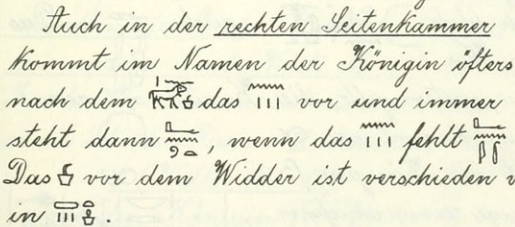 Auch in der rechten Seitenkammer
kommt im Namen der Königin öfters
nach dem das 𓈖𓏥 vor und immer
steht dann , wenn das 𓈖𓏥 fehlt
Das vor dem Widder ist verschieden
in .